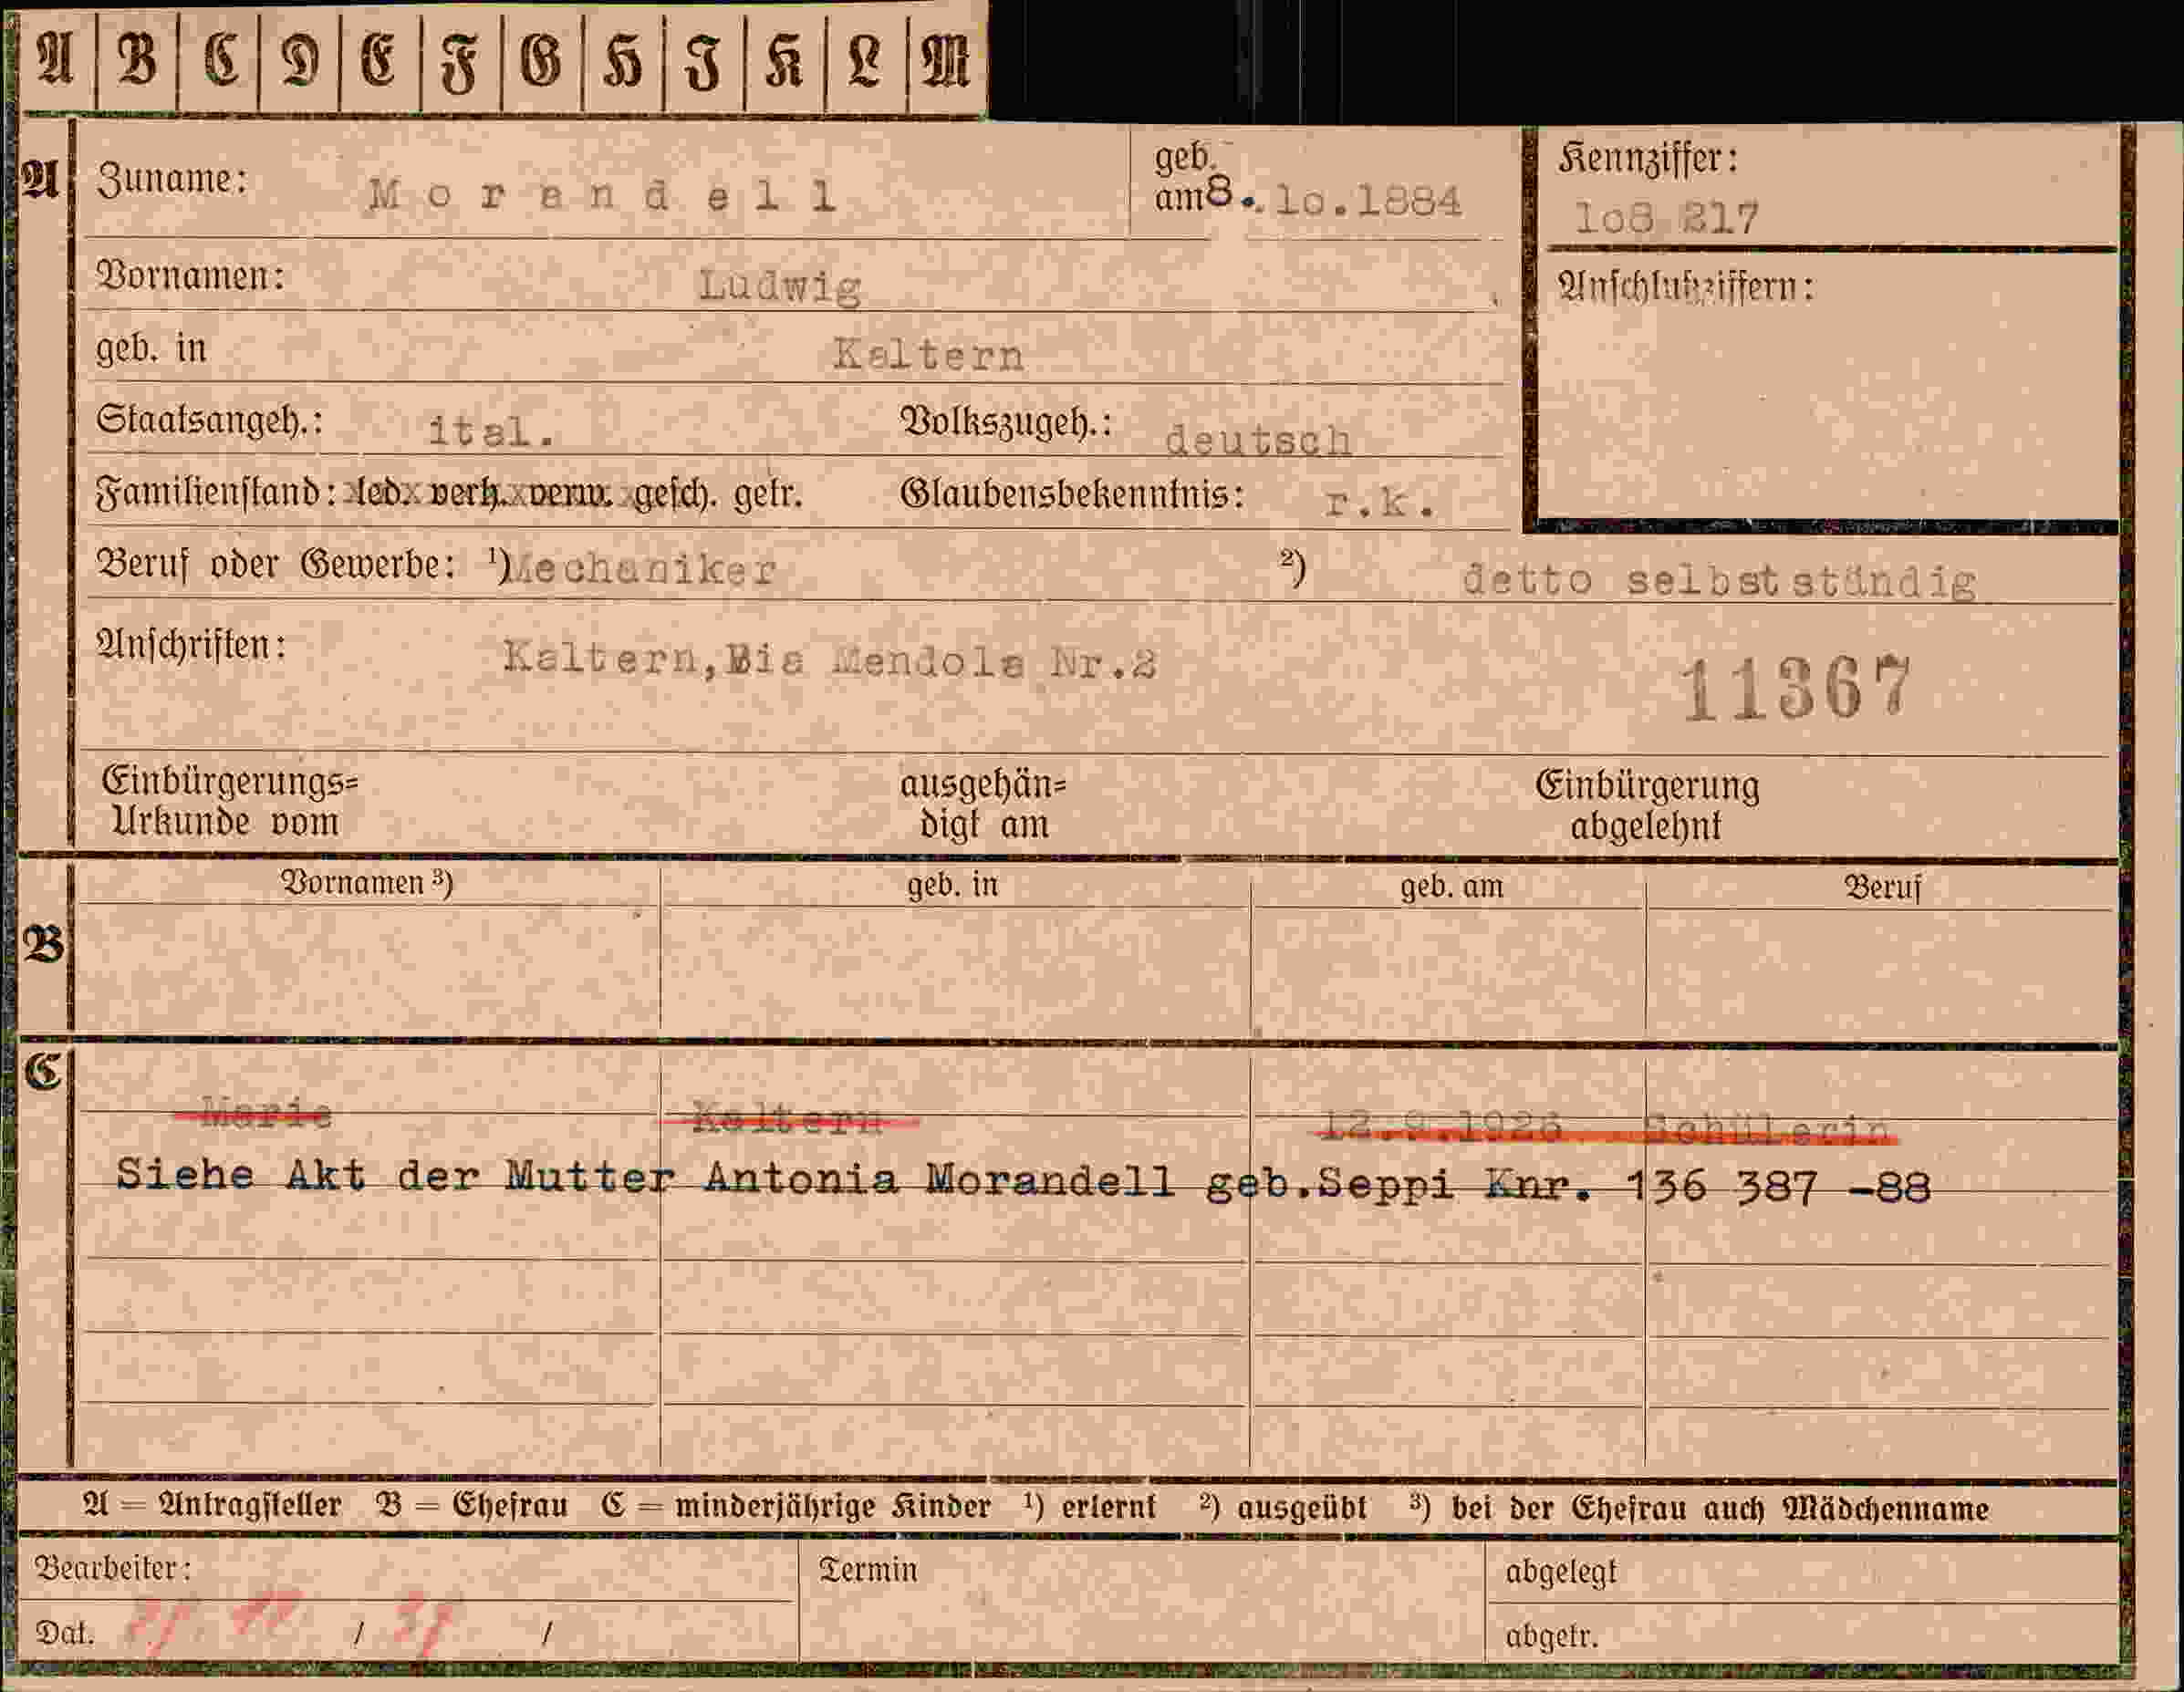 A B C D E F G H J K L M
A Zuname: Morandell geb. am 8. 10.1884 Kennziffer: 108 217
Vornamen: Ludwig Anschlußziffern:
geb. in Kaltern
Staatsangeh.: ital. Volkszugeh.: deutsch
Familienstand: led. verh. verw. gesch. getr. Glaubensbekenntnis: r.k.
Beruf oder Gewerbe: ¹) Mechaniker ²) detto selbstständig
Anschriften: Kaltern, Via Mendola Nr.2
11367
Einbürgerungs= ausgehän= Einbürgerung
Urkunde vom digt am abgelehnt
B Vornamen ³) geb. in geb. am Beruf
C
Marie Kaltern 12.9.1926 Schülerin
Siehe Akt der Mutter Antonia Morandell geb.Seppi Knr. 136 387 -88
A = Antragsteller B = Ehefrau C = minderjährige Kinder ¹) erlernt ²) ausgeübt ³) bei der Ehefrau auch Mädchenname
Bearbeiter: Termin abgelegt
Dat. / / abgetr.